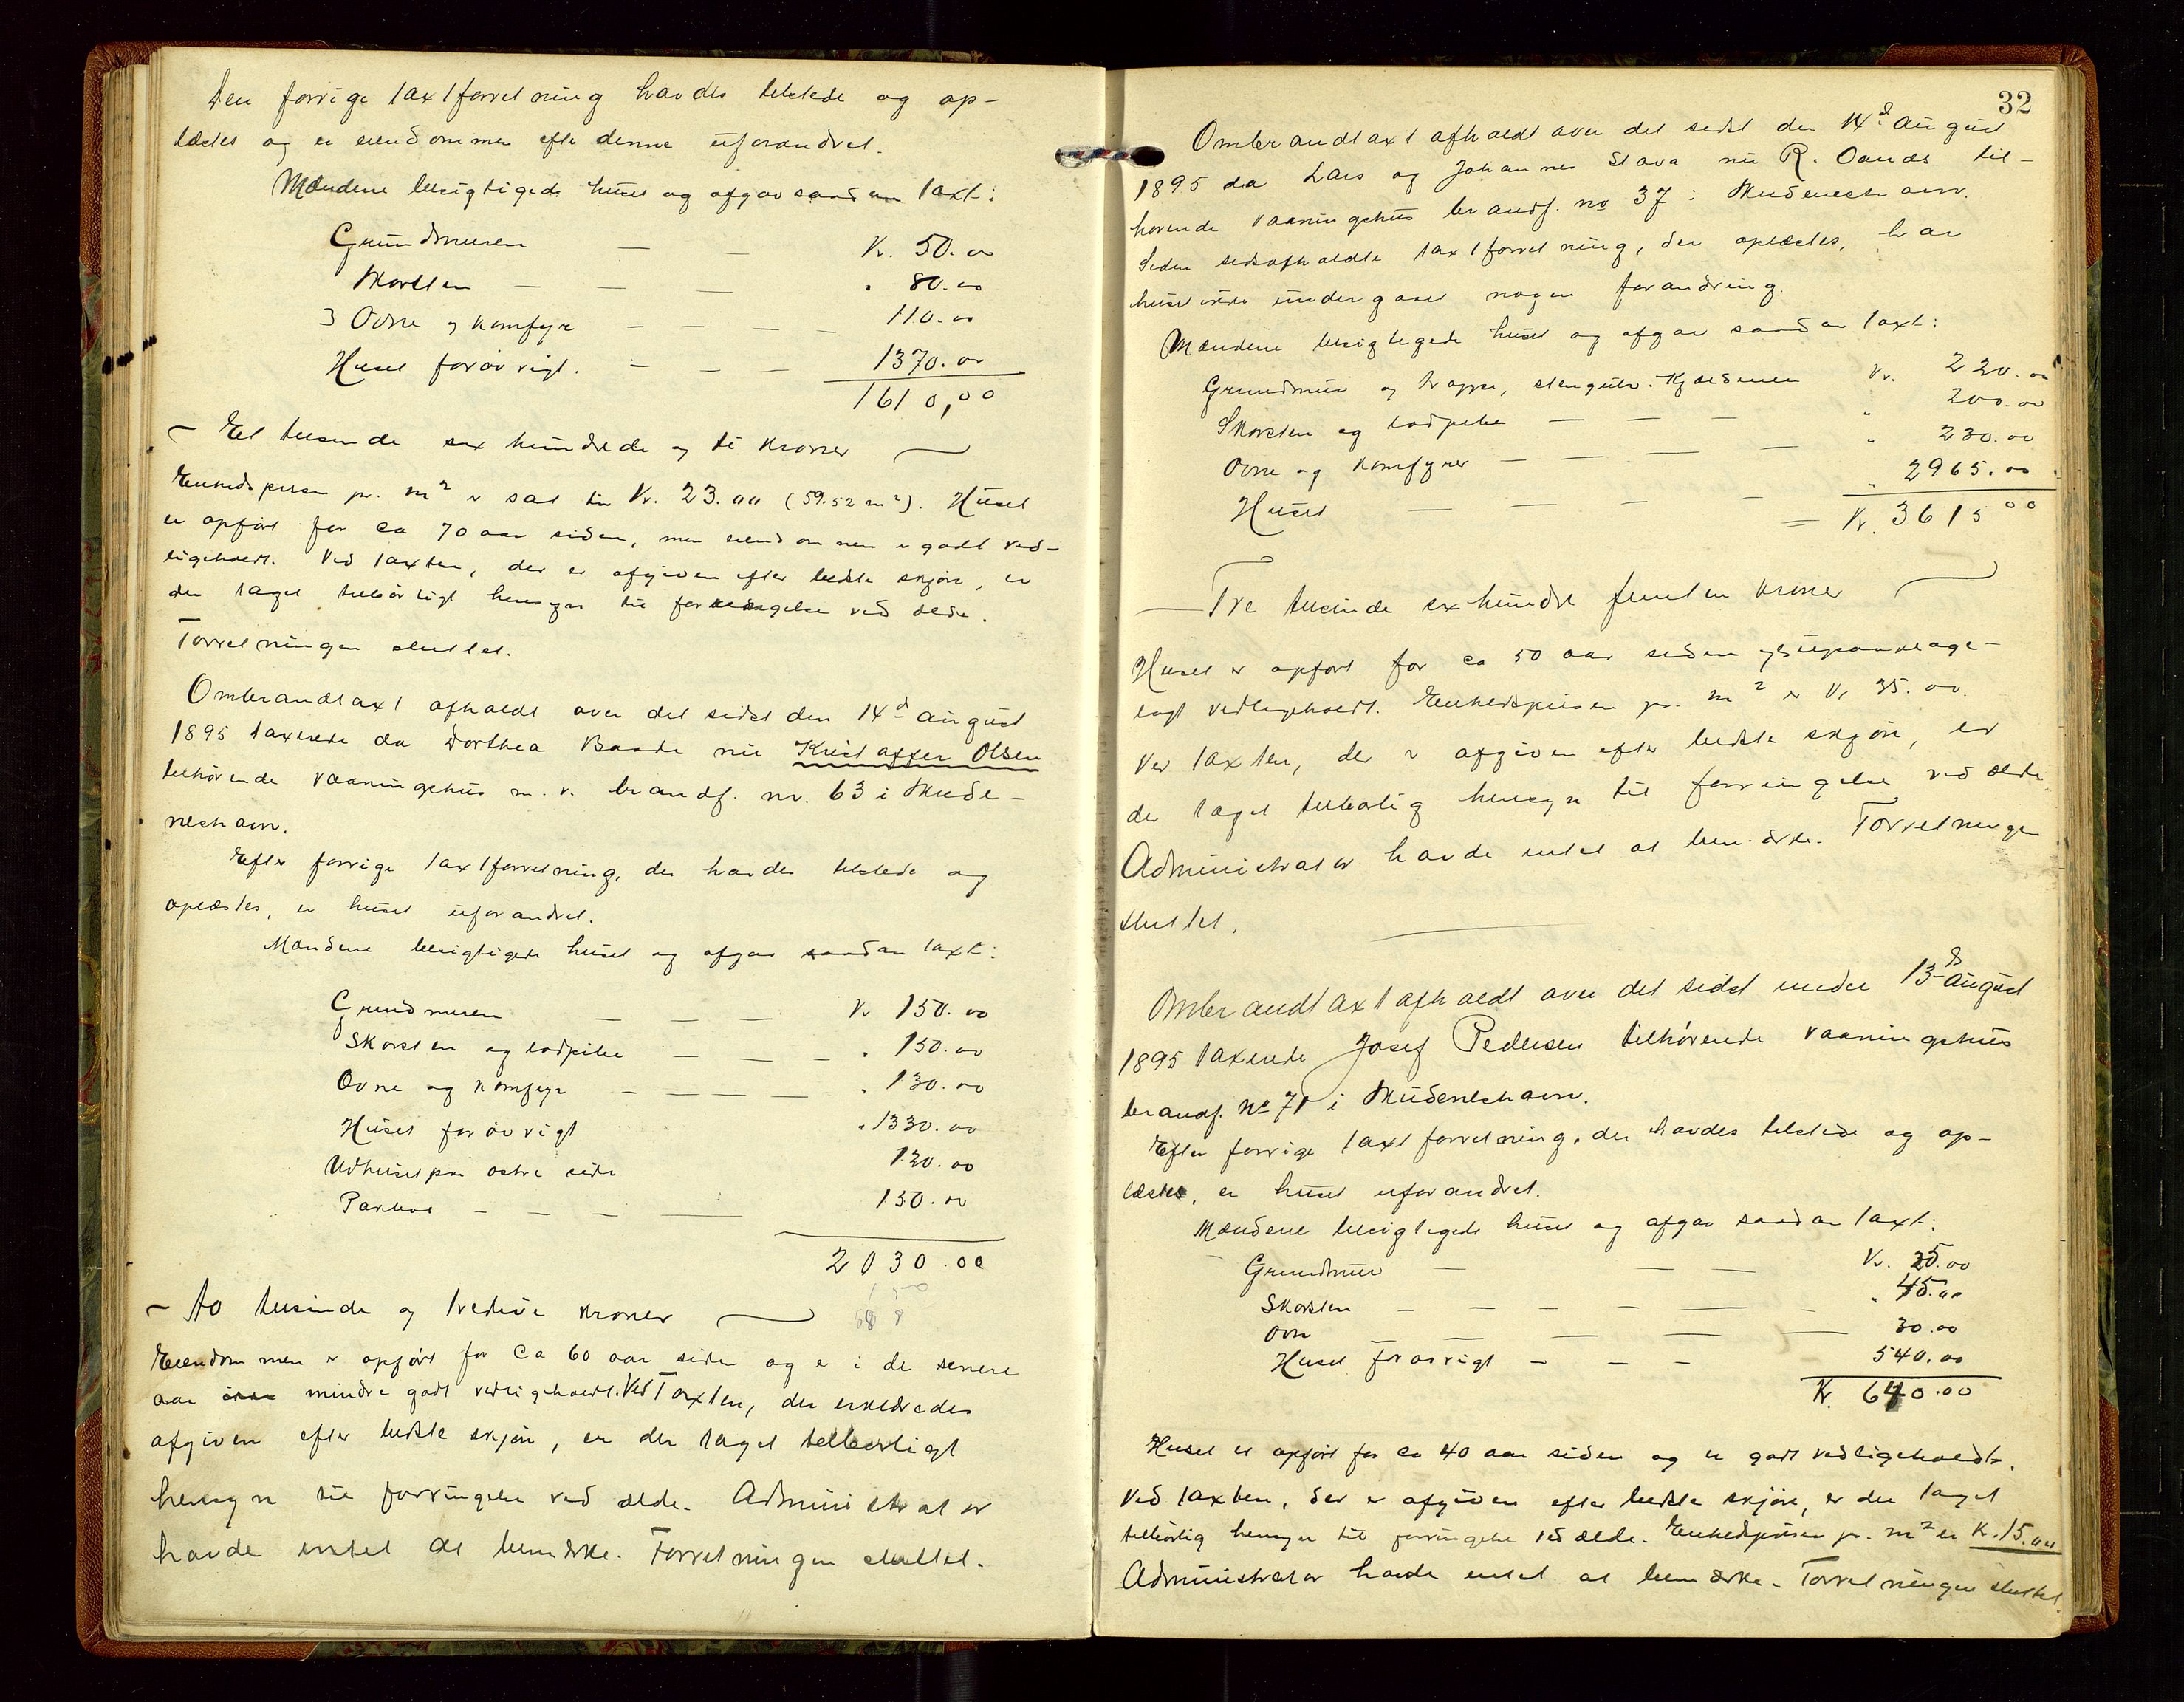 Den forrige taxtforretning havdes tilstede og op-
læstes og er eiendommen efter denne uforandret.
Mændene besigtigede huset og afgav saadan taxt:
Grundmuren — — Kr. 50.00
Skorsten — — — " 80.00
3 Ovne og komfyr — — — — 110.00
Huset forøvrigt. — — — 1370.00
1610,00
— Et tusinde sex hundrede og ti kroner —
Enhedsprisen pr. m² er sat til Kr. 23.00 (59.52 m²). Huset
er opført for ca 70 aar siden, men eiendommen er godt ved-
ligeholdt. Ved taxten, der er afgiven efter bedste skjøn, er
der taget tilbørligt hensyn til forringelse ved ælde.
Forretningen sluttet.
Ombrandtaxt afholdt over det sidst den 14d august
1895 taxerede da Dorthea Baade nu Kristoffer Olsen
tilhørende vaaningshus m. v. brandf. nr. 63 i Skude-
neshavn.
Efter forrige taxtforretning, der havdes tilstede og
oplæstes, er huset uforandret.
Mændene besigtigede huset og afgav saadan taxt:
Grundmuren — — — Kr 150.00
Skorsten og lodpibe — — — " 150.00
Ovne og komfyr — — — — " 130.00
Huset forøvrigt " 1330.00
Udhuset paa østre side 120.00
Pakbod — — — — 150.00
2030.00
— To tusinde og tredive kroner —
Eiendommen er opført for ca 60 aar siden og er i de senere
aar mindre godt vedligeholdt. Ved Taxten, der erklæredes
afgiven efter bedste skjøn, er der taget tilbørligt
hensyn til forringelse ved ælde. Administrator
havde intet at bemærke. Forretningen sluttet.
32
Ombrandtaxt afholdt over det sidst den 14d august
1895 da Lars og Johannes Stava nu R. Oanæs til-
hørende vaaningshus brandf. no 37 i Skudeneshavn.
Siden sidstafholdte taxtforretning, der oplæstes, har
huset ikke undergaaet nogen forandring.
Mændene besigtigede huset og afgav saadan taxt:
Grundmur og trappe, stengulv i Kjælderen Kr. 220.00
Skorsten og lodpibe — — — " 200.00
Ovne og komfyrer — — — — — " 230.00
Huset — — — — " 2965.00
= Kr. 3615 00
— Tre tusinde sex hundre femten kroner —
Huset er opført for ca 50 aar siden og upaaklage-
ligt vedligeholdt. Enhedsprisen pr. m² er Kr 35.00.
Ved taxten, der er afgiven efter bedste skjøn, er
der taget tilbørlig hensyn til forringelse ved ælde
Administrator havde intet at bemærke. Forretningen
sluttet.
Ombrandtaxt afholdt over det sidst under 13d august
1895 taxerede Josef Pedersen tilhørende vaaningshus
brandf. No 71 i Skudeneshavn.
Efter forrige taxtforretning, der havdes tilstede og op-
læstes, er huset uforandret.
Mændene besigtigede huset og afgav saadan taxt:
Grundmur — — — Kr. 25.00
Skorsten — — — — — — " 45.00
Ovn — — — — 30.00
Huset forøvrigt — — — 540.00
Kr. 640.00
Huset er opført for ca 40 aar siden og er godt vedligeholdt.
Ved taxten, der er afgiven efter bedste skjøn, er der taget
tilbørlig hensyn til forringelse ved ælde. Enhedsprisen pr. m² er K. 15.00
Administrator havde intet at bemærke. Forretningen sluttet.